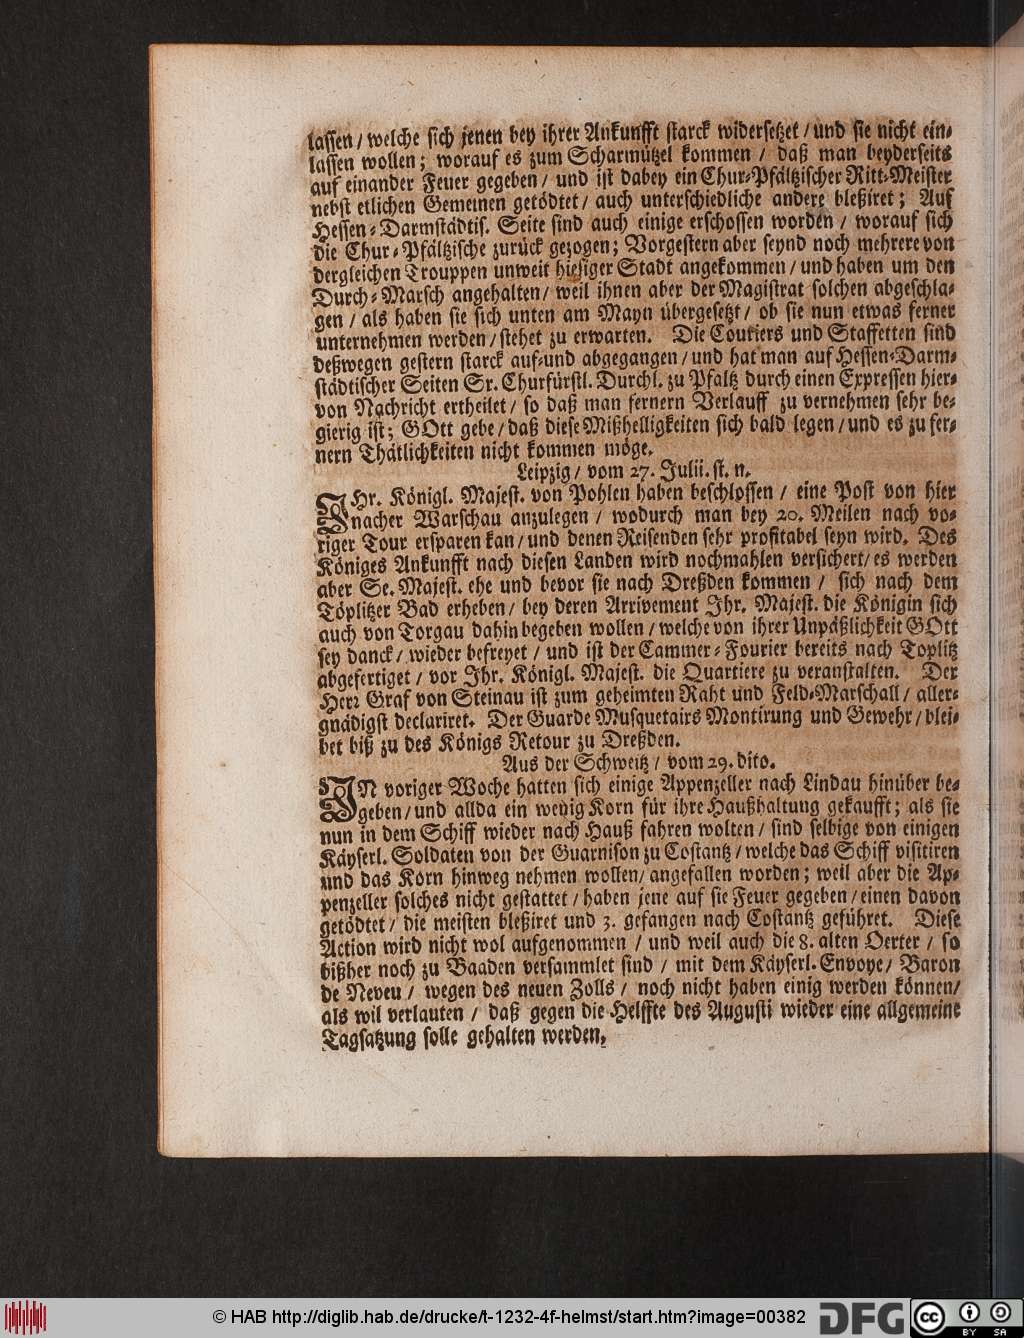 lassen / welche sich jenen bey ihrer Ankunfft starck widersetzet / und sie nicht ein-
lassen wollen; worauf es zum Scharmützel kommen / daß man beyderseits
auf einander Feuer gegeben / und ist dabey ein Chur-Pfältzischer Ritt-Meister
nebst etlichen Gemeinen getödtet / auch unterschiedliche andere bleßiret; Auf
Hessen-Darmstädtis. Seite sind auch einige erschossen worden / worauf sich
die Chur-Pfältzische zurück gezogen; Vorgestern aber seynd noch mehrere von
dergleichen Trouppen unweit hiesiger Stadt angekommen / und haben um den
Durch-Marsch angehalten / weil ihnen aber der Magistrat solchen abgeschla-
gen / als haben sie sich unten am Mayn übergesetzt / ob sie nun etwas ferner
unternehmen werden / stehet zu erwarten. Die Couriers und Staffetten sind
deßwegen gestern starck auf-und abgegangen / und hat man auf Hessen-Darm-
städtischer Seiten Sr. Churfürstl. Durchl. zu Pfaltz durch einen Expressen hier-
von Nachricht ertheilet / so daß man fernern Verlauff zu vernehmen sehr be-
gierig ist; GOtt gebe / daß diese Mißhelligkeiten sich bald legen / und es zu fer-
nern Thätlichkeiten nicht kommen möge.
Leipzig / vom 27. Julii. st. n.
IHr. Königl. Majest. von Pohlen haben beschlossen / eine Post von hier
nacher Warschau anzulegen / wodurch man bey 20. Meilen nach vo-
riger Tour ersparen kan / und denen Reisenden sehr profitabel seyn wird. Des
Königes Ankunfft nach diesen Landen wird nochmahlen versichert / es werden
aber Se. Majest. ehe und bevor sie nach Dreßden kommen / sich nach dem
Töplitzer Bad erheben / bey deren Arrivement Ihr. Majest. die Königin sich
auch von Torgau dahin begeben wollen / welche von ihrer Unpäßlichkeit GOtt
sey danck / wieder befreyet / und ist der Cammer-Fourier bereits nach Toplitz
abgefertiget / vor Ihr. Königl. Majest. die Quartiere zu veranstalten. Der
Herr Graf von Steinau ist zum geheimten Raht und Feld-Marschall / aller-
gnädigst declariret. Der Guarde Musquetairs Montirung und Gewehr / blei-
bet biß zu des Königs Retour zu Dreßden.
Aus der Schweitz / vom 29. dito.
IN voriger Woche hatten sich einige Appenzeller nach Lindau hinüber be-
geben / und allda ein wenig Korn für ihre Haußhaltung gekaufft; als sie
nun in dem Schiff wieder nach Hauß fahren wolten / sind selbige von einigen
Käyserl. Soldaten von der Guarnison zu Costantz / welche das Schiff visitiren
und das Korn hinweg nehmen wollen / angefallen worden; weil aber die Ap-
penzeller solches nicht gestattet / haben jene auf sie Feuer gegeben / einen davon
getödtet / die meisten bleßiret und 3. gefangen nach Costantz geführet. Diese
Action wird nicht wol aufgenommen / und weil auch die 8. alten Oerter / so
bißher noch zu Baaden versammlet sind / mit dem Käyserl. Envoye / Baron
de Neveu / wegen des neuen Zolls / noch nicht haben einig werden können /
als wil verlauten / daß gegen die Helffte des Augusti wieder eine allgemeine
Tagsatzung solle gehalten werden.
© HAB http://diglib.hab.de/drucke/t-1232-4f-helmst/start.htm?image=00382
DFG
cc BY SA